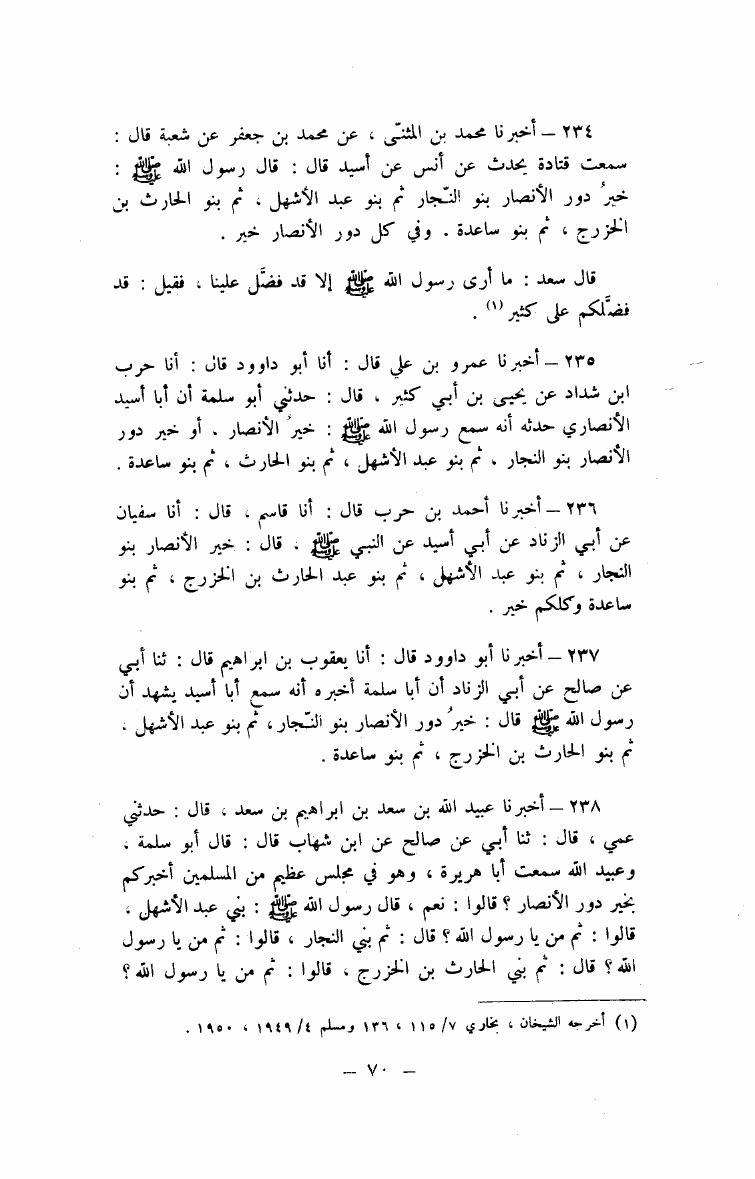 ٢٣٤ – أخبرنا محمد بن المثنّى ، عن محمد بن جعفر عن شعبة قال :
سمعت قتادة يحدث عن أنس عن أسيد قال : قال رسول الله ﷺ :
خيرُ دور الأنصار بنو النّجار ثم بنو عبد الأشهل ، ثم بنو الحارث بن
الخزرج ، ثم بنو ساعدة . وفي كل دور الأنصار خير .
قال سعد : ما أرى رسول الله ﷺ إلا قد فضَّل علينا ، فقيل : قد
فضَّلكم على كثير (١) .
٢٣٥ – أخبرنا عمرو بن علي قال : أنا أبو داوود قال : أنا حرب
ابن شداد عن يحيى بن أبي كثير ، قال : حدثني أبو سلمة أن أبا أسيد
الأنصاري حدثه أنه سمع رسول الله ﷺ : خيرُ الأنصار . أو خير دور
الأنصار بنو النجار . ثم بنو عبد الأشهل ، ثم بنو الحارث ، ثم بنو ساعدة .
٢٣٦ – أخبرنا أحمد بن حرب قال : أنا قاسم ، قال : أنا سفيان
عن أبي الزناد عن أبي أسيد عن النبي ﷺ ، قال : خير الأنصار بنو
النجار ، ثم بنو عبد الأشهل ، ثم بنو عبد الحارث بن الخزرج ، ثم بنو
ساعدة وكلكم خير .
٢٣٧ – أخبرنا أبو داوود قال : أنا يعقوب بن ابراهيم قال : ثنا أبي
عن صالح عن أبي الزناد أن أبا سلمة أخبره أنه سمع أبا أسيد يشهد أن
رسول الله ﷺ قال : خيرُ دور الأنصار بنو النّجار ، ثم بنو عبد الأشهل .
ثم بنو الحارث بن الخزرج ، ثم بنو ساعدة .
٢٣٨ – أخبرنا عبيد الله بن سعد بن ابراهيم بن سعد ، قال : حدثني
عمي ، قال : ثنا أبي عن صالح عن ابن شهاب قال : قال أبو سلمة ،
وعبيد الله سمعت أبا هريرة ، وهو في مجلس عظيم من المسلمين أخبركم
بخير دور الأنصار ؟ قالوا : نعم ، قال رسول الله ﷺ : بني عبد الأشهل ،
قالوا : ثم من يا رسول الله ؟ قال : ثم بني النجار ، قالوا : ثم من يا رسول
الله ؟ قال : ثم بني الحارث بن الخزرج ، قالوا : ثم من يا رسول الله ؟
(١) أخرجه الشيخان ، بخاري ٧/ ١١٥ ، ١٣٦ ومسلم ٤/ ١٩٤٩ ، ١٩٥٠ .
– ٧٠ –